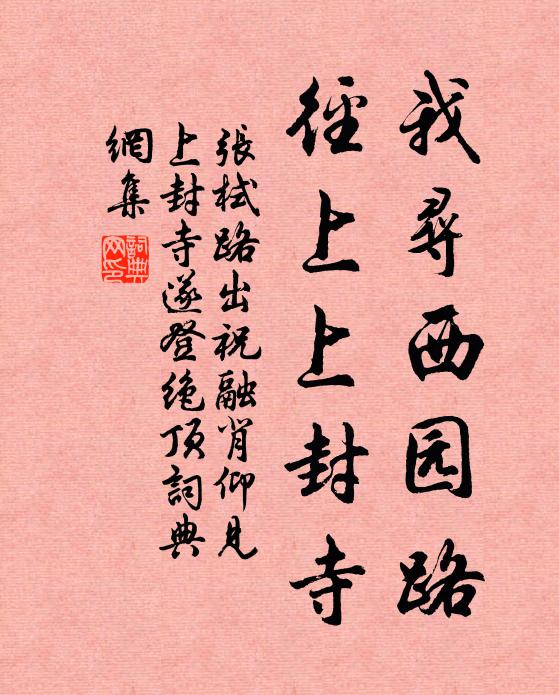 我尋西园路
徑上上封寺
張栻路出祝融背仰見
上封寺遂登绝顶詞典
網集
詞典
网印